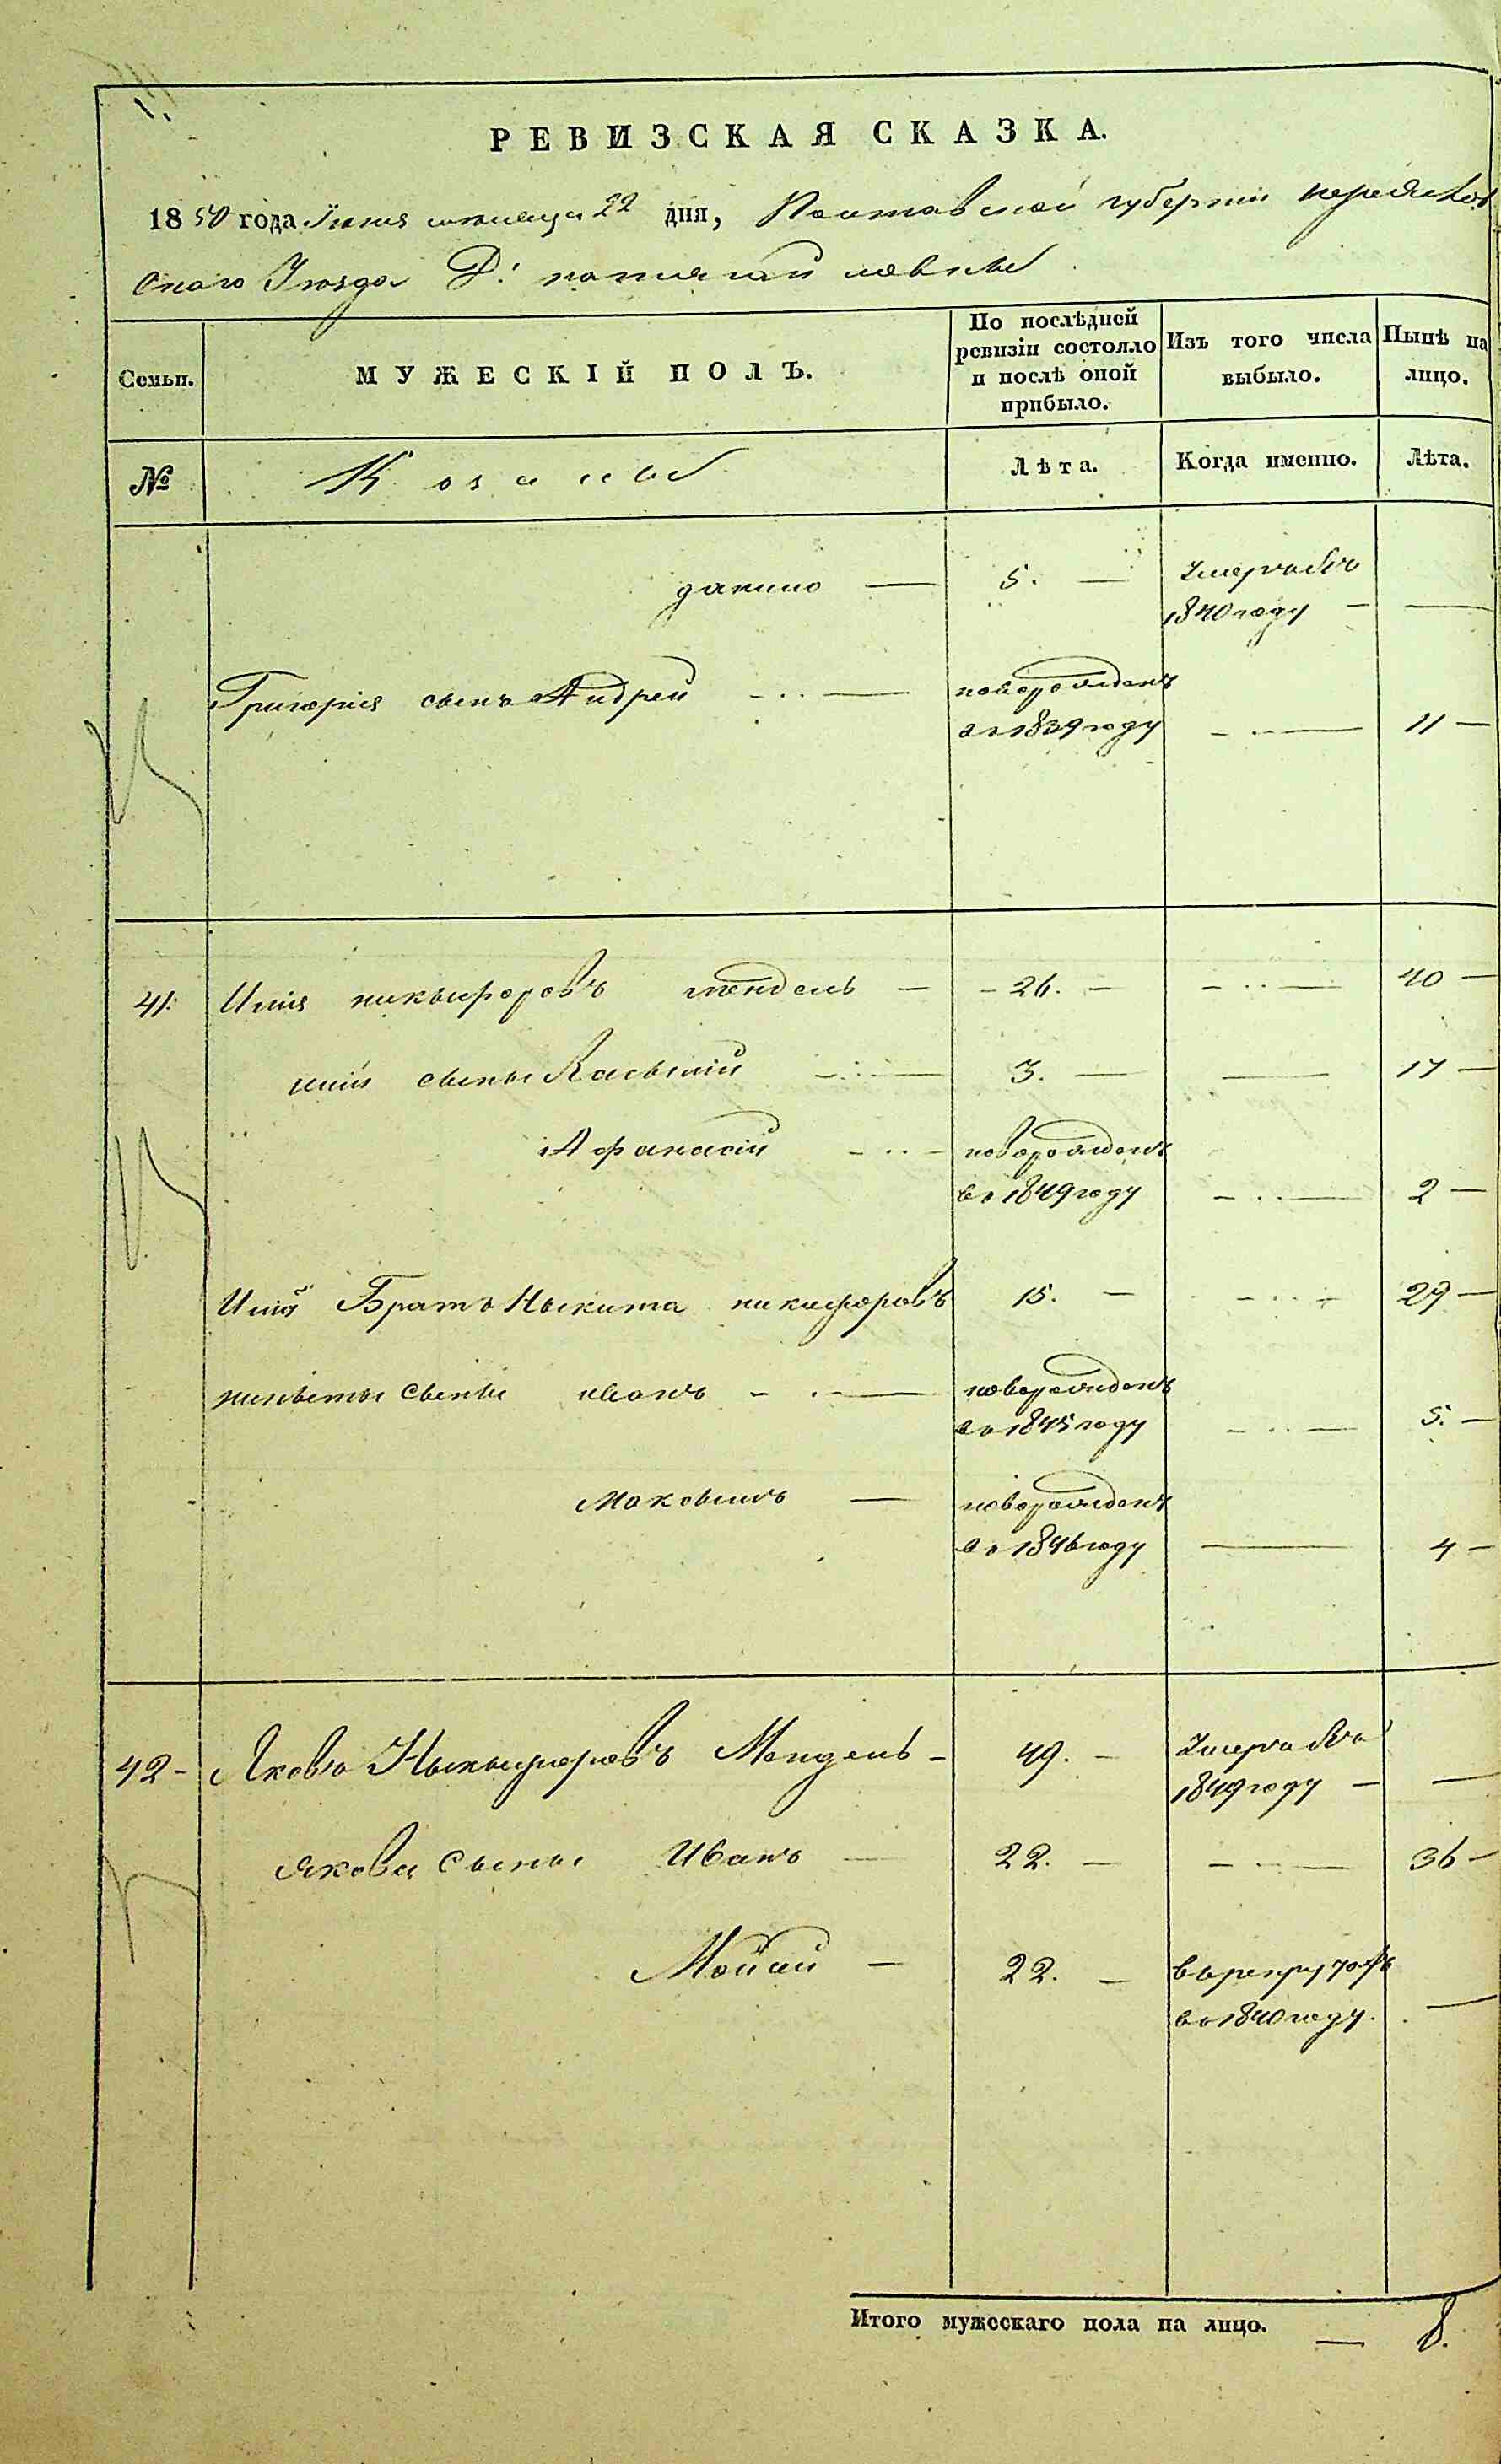 РЕВИЗСКАЯ СКАЗКА.
1850 года Июня месяца 22 дня, Полтавской губернии Переяслов
скаго Уезда Д:
Семьи.
МУЖЕСКІЙ ПОЛЪ.
По послѣдней ревизіи состояло и послѣ оной прибыло.
Изъ того числа выбыло.
Нынѣ на лицо.
№
Козаки
Лѣта.
Когда именно.
Лѣта.
данило — 5. — Умеръ въ
1840 году — —
Григорія сынъ Андрей — новорожденъ
въ 1839 году — 11 —
41. Илія никыфоровъ мендель — 26. — — 40 —
иліи сыны Касьянъ — 3. — — 17 —
Афанасій — новорожденъ
въ 1849 году — 2 —
Иліи Братъ Ныкита никифоровъ 15. — — 29 —
никиты сыны иванъ — новорожденъ
въ 1845 году — 5. —
Максымъ — новорожденъ
въ 1846 году — 4 —
42 - Яковъ Ныкыфоровъ Мендель - 49. — Умеръ въ
1849 году — —
Якова Сыны Иванъ — 22. — — 36 —
Мойсей — 22. — въ рекруты
въ 1840 году. —
Итого мужескаго пола на лицо. — 8.